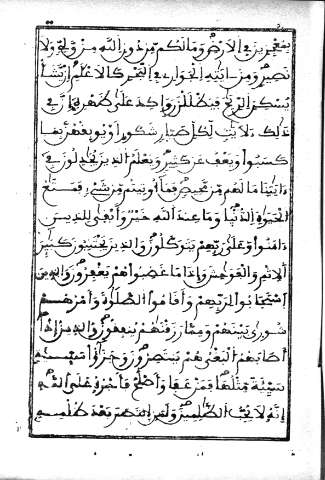 بمعجزين في الارض وما لكم من دون الله من ولي ولا
نصير ومن ايته الجوار في البحر كالاعلم ان يشأ
يسكن الريح فيظللن رواكد على ظهره ان في
ذلك لايت لكل صبار شكور او يوبقهن بما
كسبوا ويعف عن كثير ويعلم الذين يجدلون في
ءايتنا ما لهم من محيص فما اوتيتم من شيء فمتع
الحيوة الدنيا وما عند الله خير وابقى للذين
ءامنوا وعلى ربهم يتوكلون والذين يجتنبون كبير
الاثم والفوحش واذا ما غضبوا هم يغفرون والذين
استجابوا لربهم واقاموا الصلوة وامرهم
شورى بينهم ومما رزقنهم ينفقون والذين اذا
اصابهم البغي هم ينتصرون وجزؤا سيئة
سيئة مثلها فمن عفا واصلح فاجره على الله
انه لا يحب الظلمين ولمن انتصر بعد ظلمه